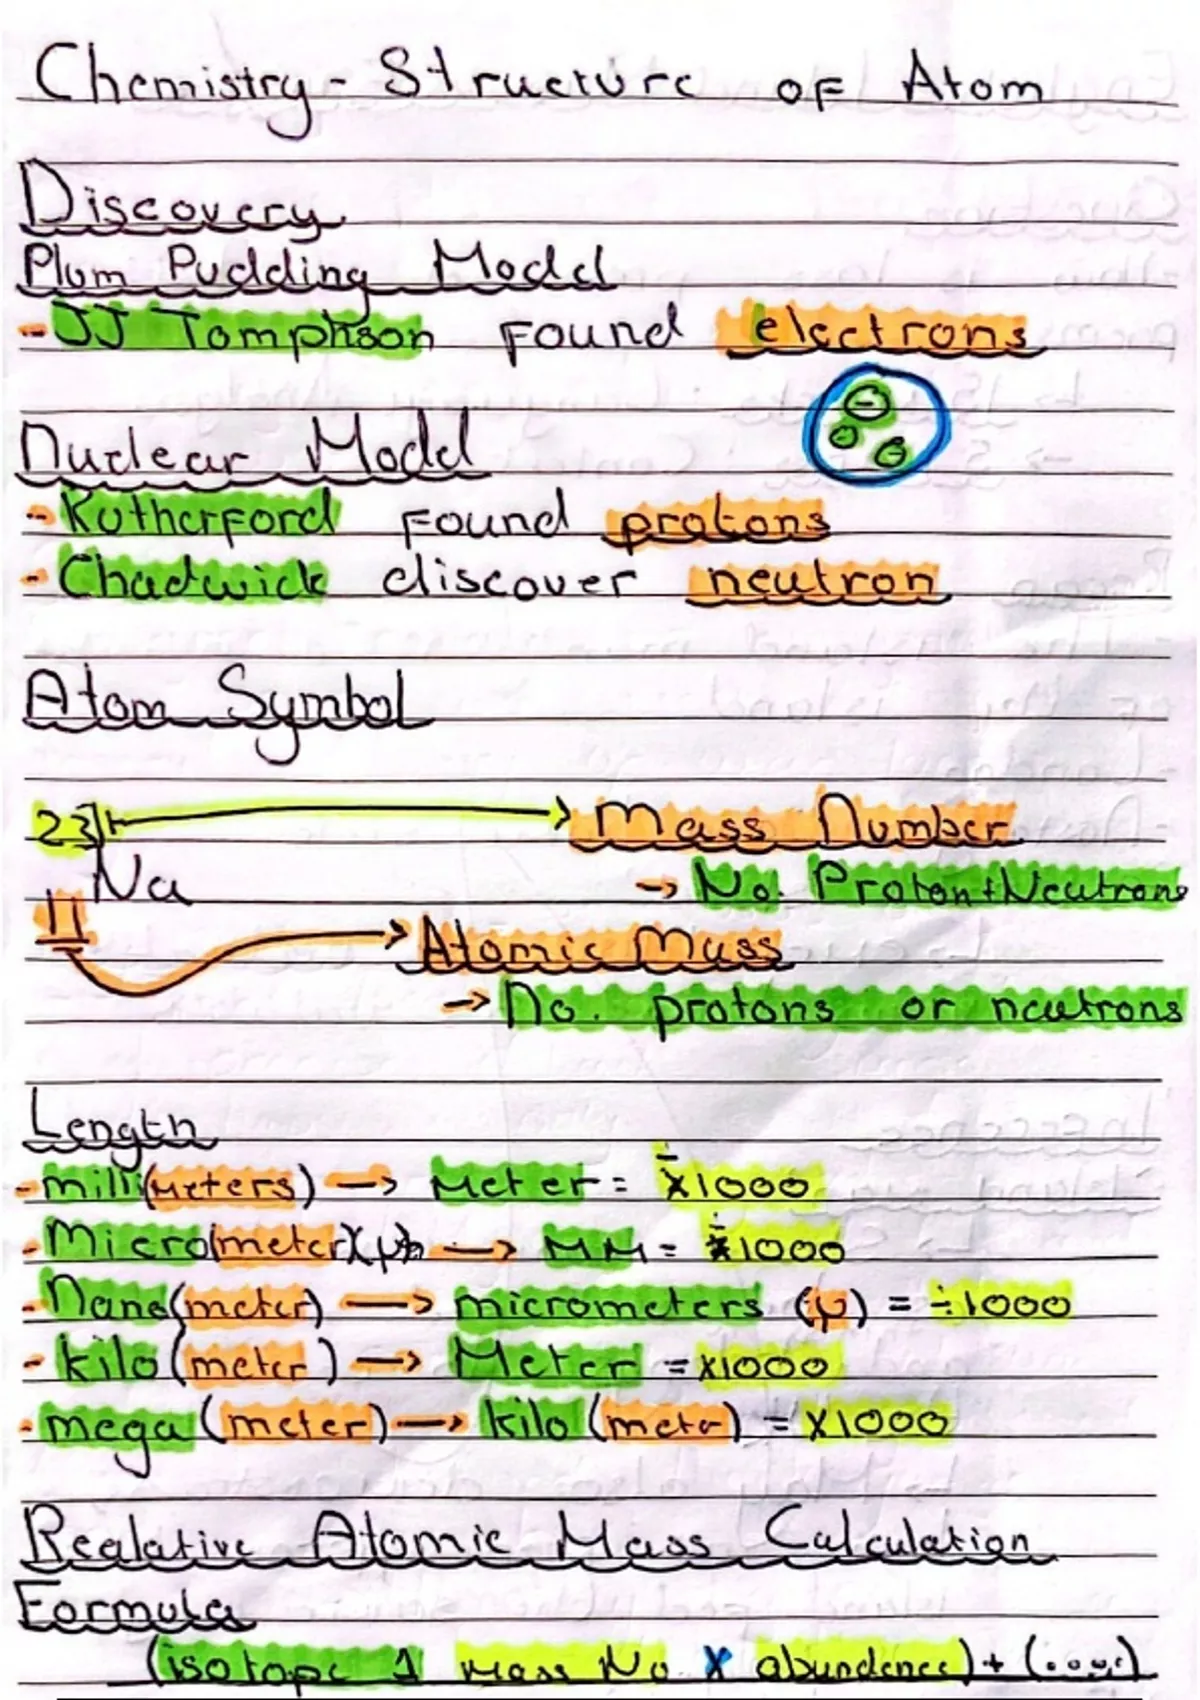 Chemistry - Structure of Atom
Discovery
Plum Pudding Model
- JJ Tomphson Found electrons
Nuclear Model
- Rutherford Found protons
- Chadwick discover neutron
Atom Symbol
23 → Mass Number
Na → No. Proton + Neutrons
11 → Atomic Mass
→ No. protons or neutrons
Length
- milli(meters) → Meter = ÷1000
- Micro(meter)(μ) → MM = ÷1000
- Nano(meter) → micrometers (μ) = ÷1000
- kilo(meter) → Meter = x1000
- mega(meter) → kilo(meter) = x1000
Realative Atomic Mass Calculation
Formula
(isotope 1 mass No x abundence) + (